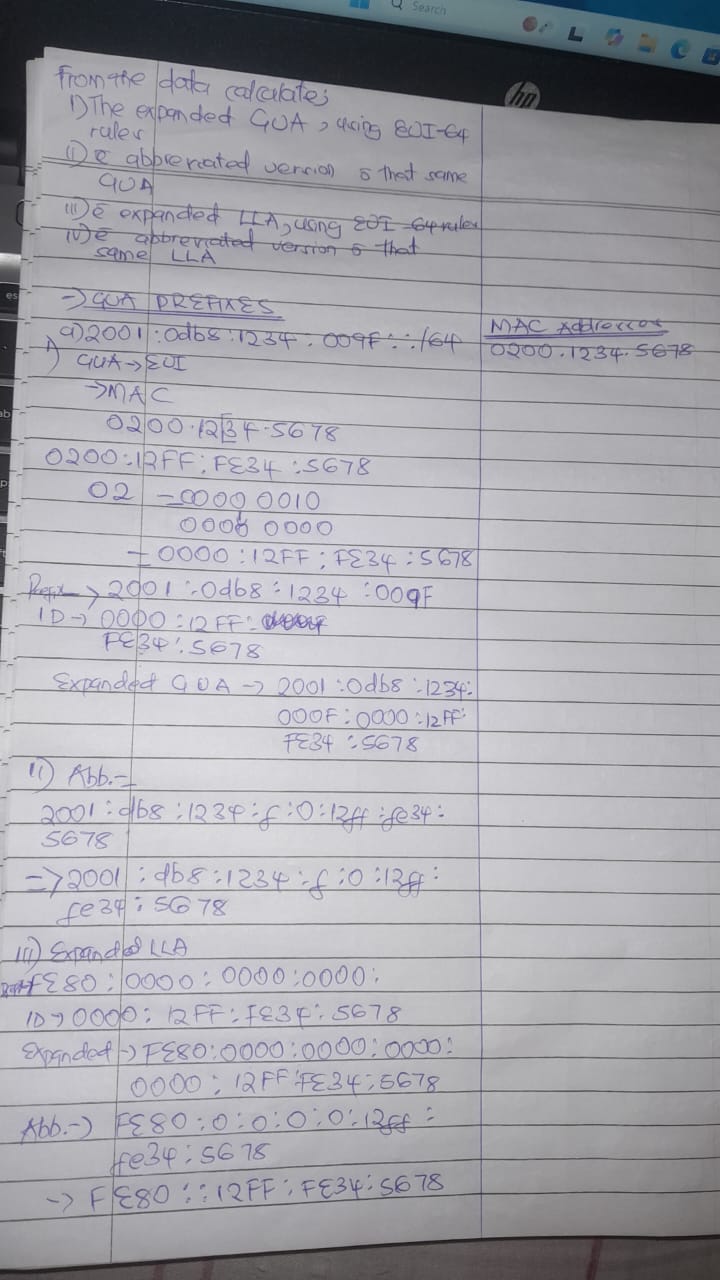 Search
hp
From the data calculate;
i) The expanded GUA, using EUI-64
rules
ii) e abbreviated version o that same
GUA
iii) e expanded LLA, using EUI-64 rules
iv) e abbreviated version o that
same LLA
→ GUA PREFIXES
MAC Addresses
a) 2001:0db8:1234:009F::/64
0200.1234.5678
i) GUA → EUI
→ MAC
0200.12|34.5678
0200:12FF:FE34:5678
02 = 0000 0010
0000 0000
= 0000:12FF:FE34:5678
Prefix → 2001:0db8:1234:009F
ID → 0000:12FF:
FE34:5678
Expanded GUA → 2001:0db8:1234:
000F:0000:12FF:
FE34:5678
ii) Abb. =
2001:db8:1234:f:0:12ff:fe34:
5678
=> 2001:db8:1234:f:0:12ff:
fe34:5678
iii) Expanded LLA
FE80:0000:0000:0000:
ID → 0000:12FF:FE34:5678
Expanded → FE80:0000:0000:0000:
0000:12FF:FE34:5678
Abb. → FE80:0:0:0:0:12ff:
fe34:5678
→ FE80::12FF:FE34:5678